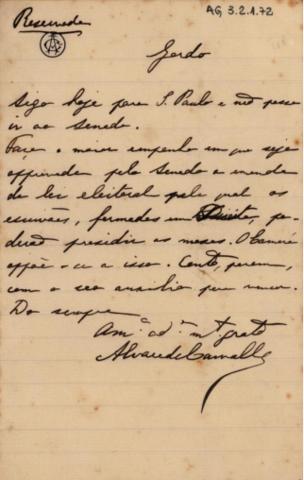 Reservada
AG 3.2.1.72
Gordo
Sigo hoje para S. Paulo e não posso
ir ao senado.
Faço o maior empenho em que seja
approvada pelo Senado a emenda
da lei eleitoral pela qual os
escrivães, formados em Direito, po-
derão presidir as mesas. O
oppõe-se a isso. Conto, porem,
com o seo auxilio para vencer.
Do sempre
Am.º ad.or m.to grato
Alvaro de Carvalho